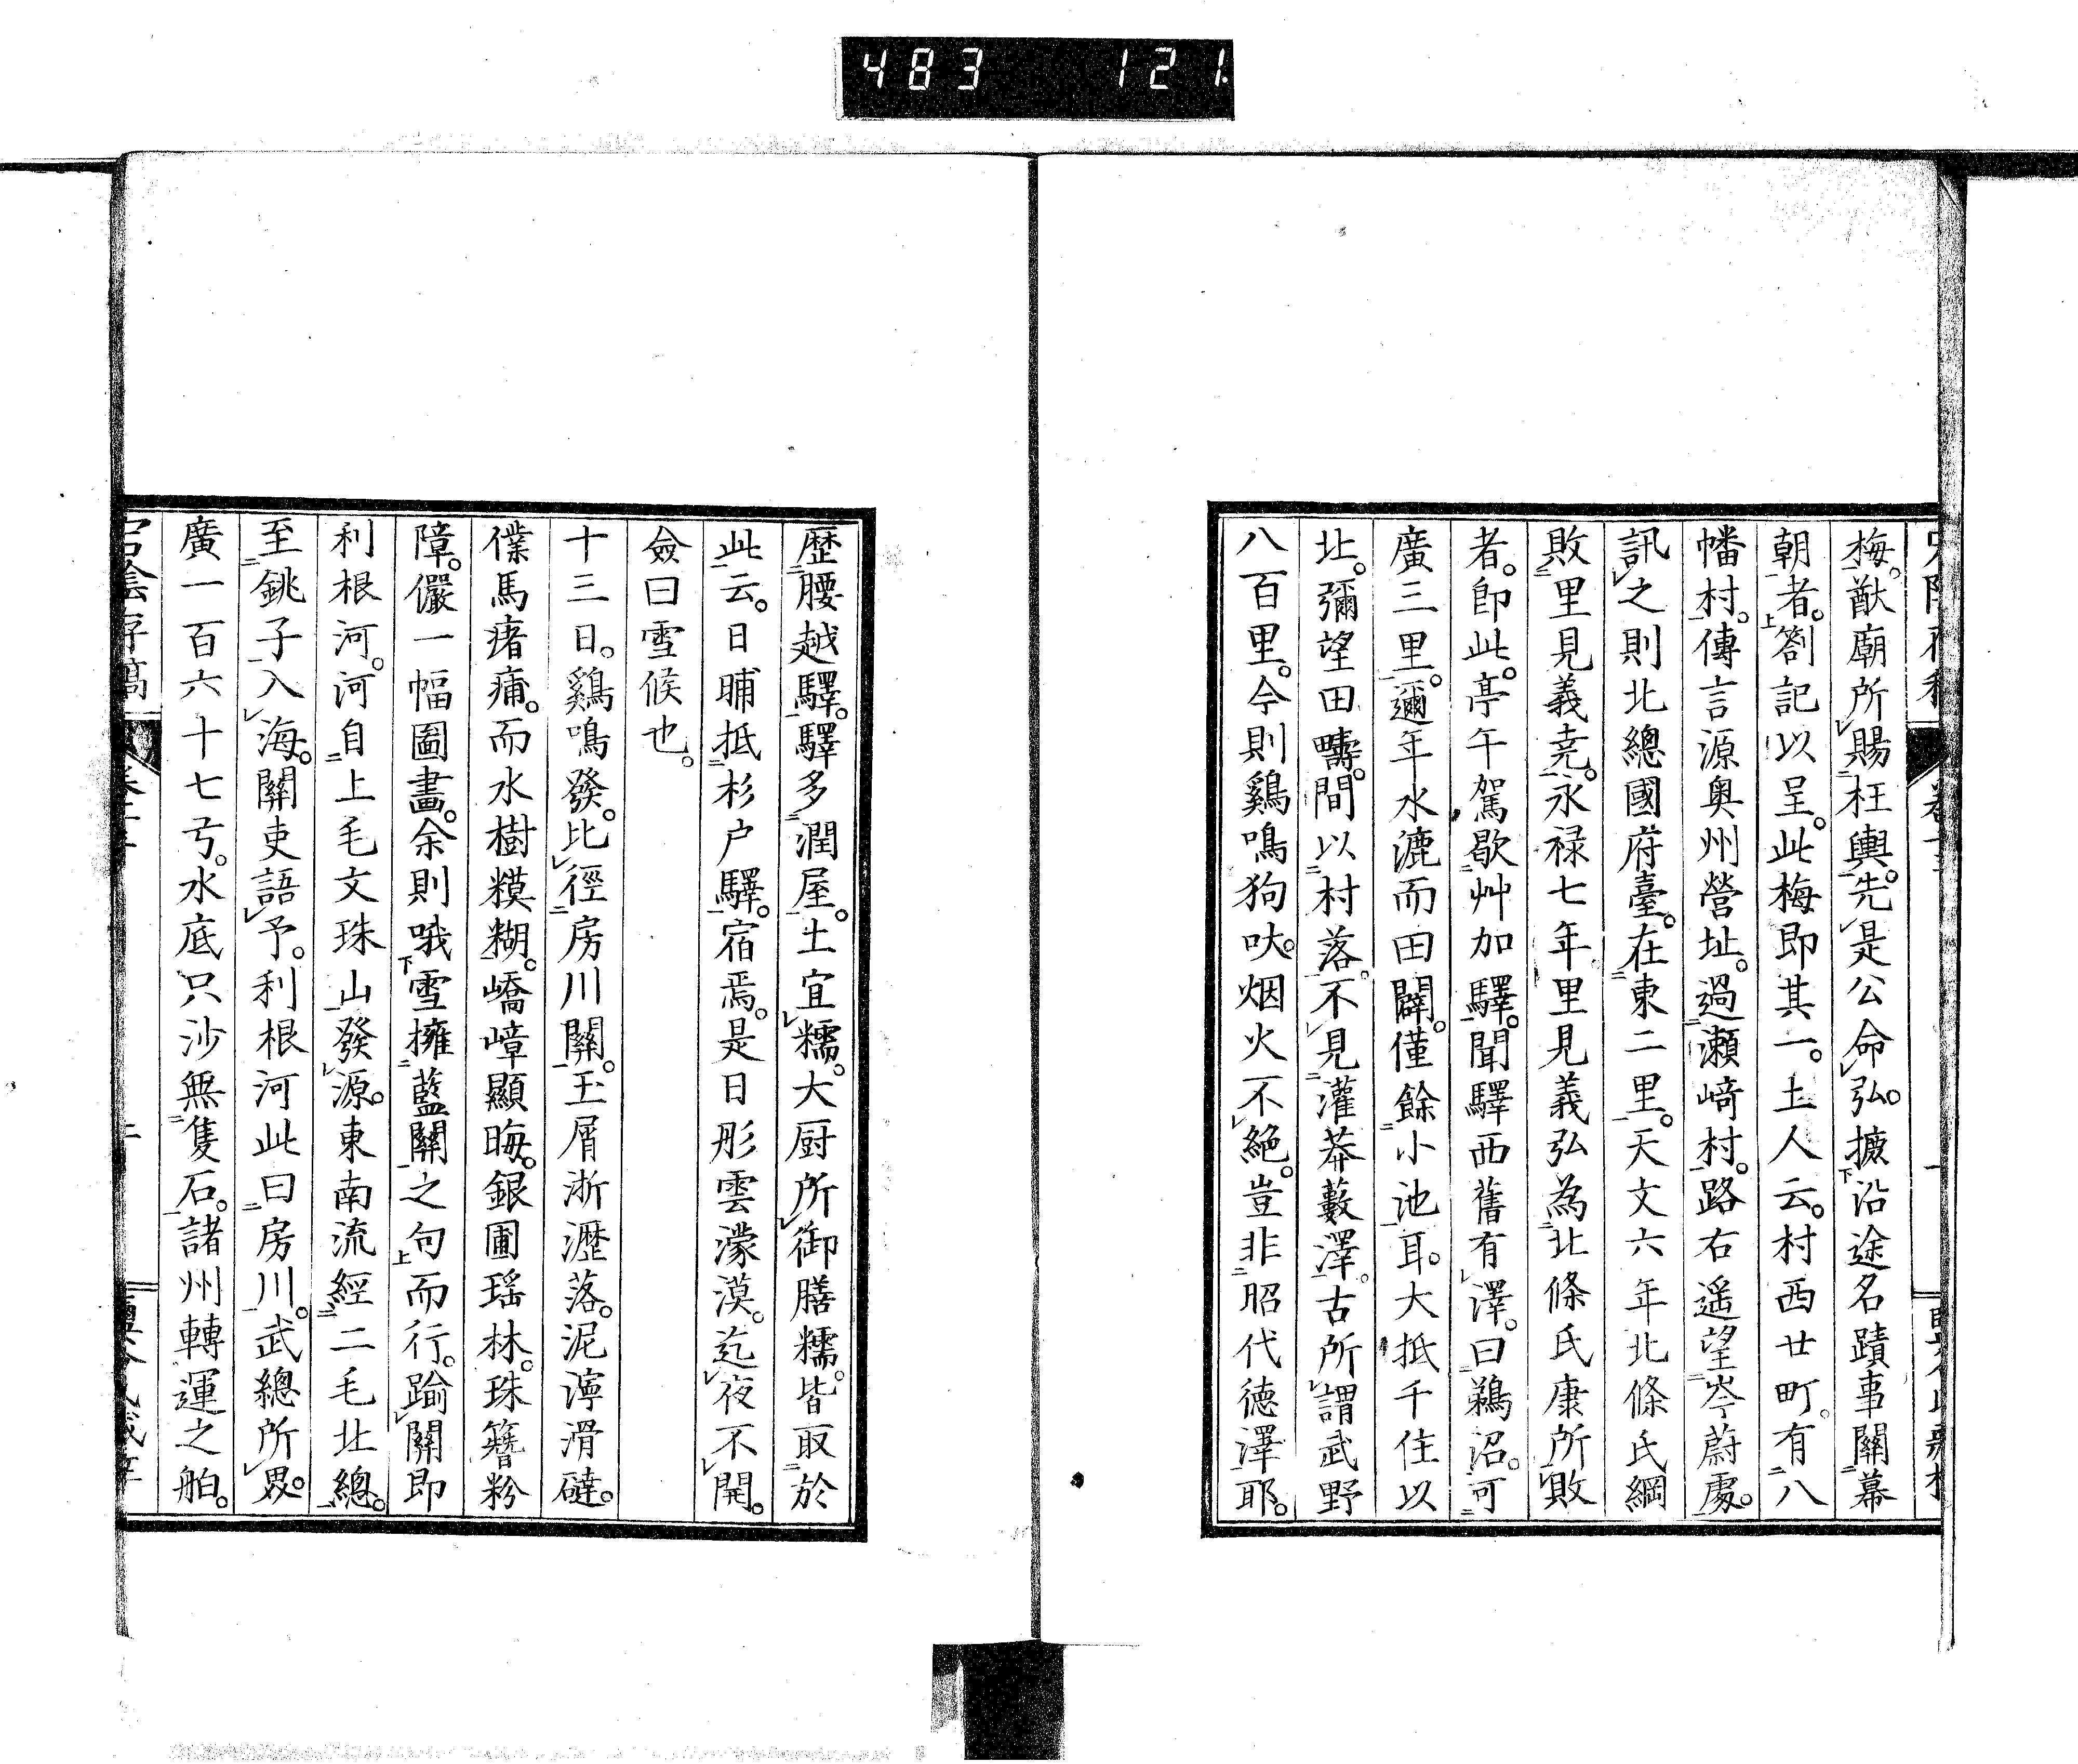 483 121.
梅。猷廟所賜枉輿。先是公命弘。摭沿途名蹟事關幕
朝者。劄記以呈。此梅即其一。土人云。村西廿町。有八
幡村。傳言源奥州營址。過瀬﨑村。路右遥望岑蔚處。
訊之則北總國府臺。在東二里。天文六年北條氏綱
敗里見義尭。永禄七年里見義弘為北條氏康所敗
者。即此。亭午駕歇艸加驛。聞驛西舊有澤。曰鵜沼。可
廣三里。邇年水漉而田闢。僅餘小池耳。大抵千住以
北。彌望田疇。間以村落。不見灌莽藪澤。古所謂武野
八百里。今則鷄鳴狗吠。烟火不絶。豈非昭代德澤耶。
歴腰越驛。驛多潤屋。土宜糯。大厨所御膳糯。皆取於
此云。日晡抵杉户驛。宿焉。是日彤雲濛漠。迄夜不開。
僉曰雪候也。
十三日。鷄鳴發。比徑房川關。玉屑淅瀝落。泥濘滑㒒。
僕馬瘏痡。而水樹糢糊。嶠嶂顯晦。銀圃瑶林。珠簪粉
障。儼一幅圖畫。余則哦雪擁藍關之句而行。踰關即
利根河。河自上毛文珠山發源。東南流經二毛北總。
至銚子入海。關吏語予。利根河此曰房川。武總所界。
廣一百六十七弓。水底只沙無隻石。諸州轉運之舶。